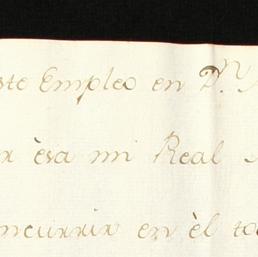 ste Empleo en D.ⁿ
èsa mi Real
ncurrir en èl to